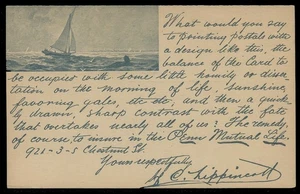 What would you say
to printing postals with
a design like this, the
balance of the Card to
be occupied with some little homily or disser
tation on the morning of life, sunshine,
favoring gales, etc etc, and then a quick
ly drawn, sharp contrast with the fate
that overtakes nearly all of us? The remedy,
of course, to insure in the Penn Mutual Life.
921-3-5 Chestnut St.
Yours respectfully,
C. Lippincott